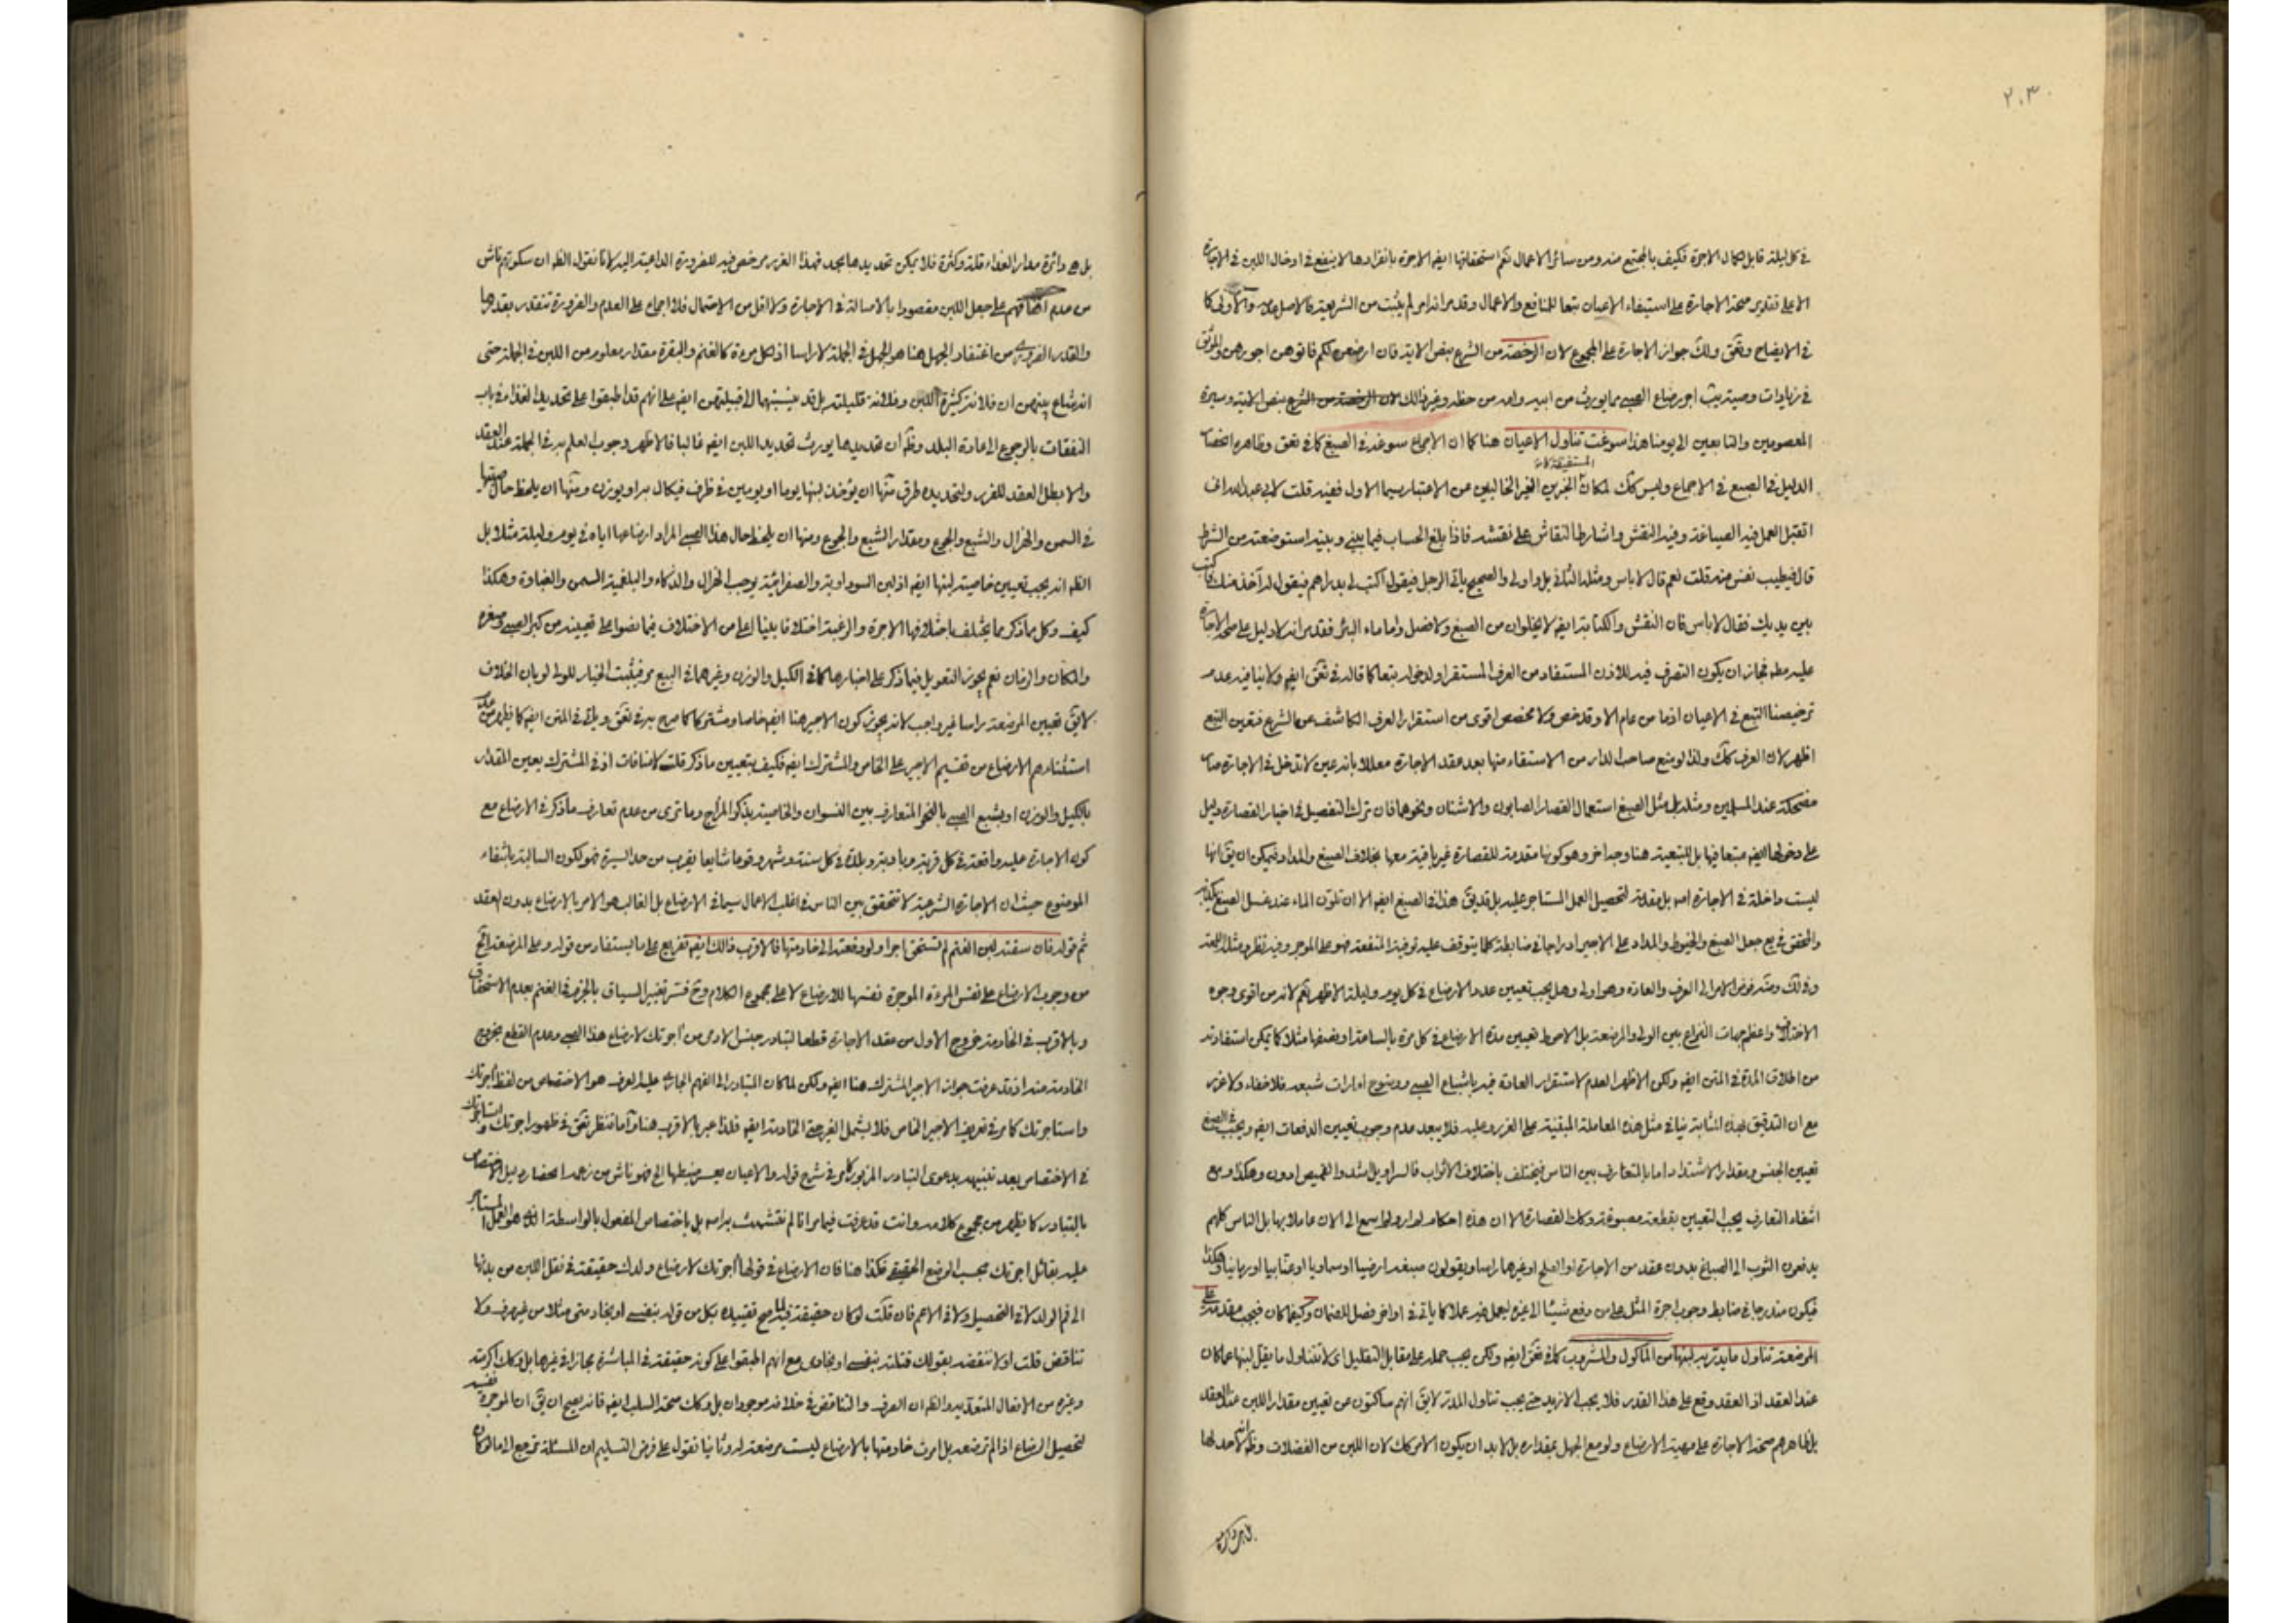 ٢٠٣
في كل ليلة قابل كمال الاجرة فكيف بالمجتمع منه ومن سائر الاعمال نعم استحقاقها ايضا الاجرة بانفرادها لا ينفع في ادخال اللبن في الاجارة
الا على تقدير صحة الاجارة على استيفاء الاعيان تبعا للمنافع والاعمال وقد مر انه امر لم يثبت من الشريعة فالاصل عدمه والاولى كما
في الايضاح وتحق ولك جواز الاجارة على المجموع لان الرخصة من الشرع بنص الاية فان ارضعن لكم فاتوهن اجورهن
في زيادات وصية يرث اجر رضاع الصبي مما يورث من ابيه وامه من حظه وغير ذلك بنص الاية وسيرة
المعصومين والتابعين الى يومنا هذا سوغت تناول الاعيان هنا كما ان الاجماع سوغه في الصبغ كما في تحق وظاهره انحصار
الدليل في الصبغ في الاجماع وليس كك لمكان الخبرين الغير الخاليين عن الاعتبار سيما الاول ففيه قلت لابي عبد الله اني
اتقبل العمل فيه الصياغة وفيه النقش واشارط النقاش على نقشه فاذا بلغ الحساب فيما بيني وبينه استوضعته من الشرط
قال فيطيب نفس منه قلت نعم قال لا باس ومثله الثاني بل واولى والصحيح ياتي الرجل فيقول اكتب لي بدراهم فيقول له آخذ منك
بين يديك فقال لا باس فان النقش والكتابة ايضا لا يخلوان من الصبغ ولا فصل واما ماء البئر فقد مر انه لا دليل على صحة الاجارة
عليه مطه فجاز ان يكون التصرف فيه للاذن المستفاد من العرف المستقر او لدخوله تبعا كما قاله في تحق ايضا ولا ينافيه عدم
ترخيصنا التبع في الاعيان اذ ما من عام الا وقد خص ولا مخصص اقوى من استقرار العرف الكاشف عن الشرع فتعين التبع
اظهر لان العرف كك ولذا لو منع صاحب الدار من الاستقاء منها بعد عقد الاجارة معللا بانه عين لا تدخل في الاجارة صار
مضحكة عند المسلمين ومثله بل مثل الصبغ استعمال القصار الصابون والاشنان ونحوهما فان ترك التفصيل في اخبار القصارة دليل
على دخولها ايضا متبعا فيها بل للتبعية هنا وجه اخر وهو كونها مقدمة للقصارة غير باقية معها بخلاف الصبغ والمداد فيمكن ان يق انها
ليست داخلة في الاجارة اصلا بل مقدمة لتحصيل العمل المستاجر عليه بل قد يق هذا في الصبغ ايضا الا ان تلون الماء عند غسل الصبغ
والمحقق في جعل الصبغ والخيوط والمداد على الاجير ادراجا في ضابطة كلما يتوقف عليه توفية المنفعة فهو على الموجر وفيه نظر ومثله
وفي لك ومنه فوض الامر الى العرف والعادة وهو اولى وهل يجب تعيين عدد الارضاع في كل يوم وليلة الاظهر نعم لانه من اقوى وجوه
الاختلاف واعظم جهات النزاع بين الولي والمرضعة بل الاحوط تعيين مدة الارضاع في كل مرة بالساعة او نصفها مثلا كما يمكن استفادته
من اطلاق المدة في المتن ايضا ولكن الاظهر العدم لاستقرار العادة فيه باشباع الصبي ووضوح امارات شبعه فلا خفاء ولا غرر
مع ان التدقيق بهذه المثابة ينافي مثل هذه المعاملة المبتنية على الغرر وعليه فلا يبعد عدم وجوب تعيين الدفعات ايضا ويجب في الصبغ
تعيين الجنس ومقدار الاشتداد اما بالمتعارف بين الناس فيختلف باختلاف الاثواب فالسراويل اشد والقميص ادون وهكذا ومع
انتفاء التعارف يجب التعيين بقطعة مصبوغة وكك القصارة الا ان هذه احكام لم ار ولم اسمع الى الان عاملا بها بل الناس كلهم
يدفعون الثوب الى الصباغ بدون عقد من الاجارة او الصلح او غيرهما راسا ويقولون صبغه ارضيا او سماويا او عنابيا او رمانيا وهكذا
فيكون مندرجا في ضابط وجوب اجرة المثل على من دفع شيئا الى غيره ليعمل فيه عملا كما ياتي في اواخر فصل الضمان وكيفما كان فيجب مقدمة على
المرضعة تناول ما يدر به لبنها من الماكول والمشروب كما في تحق ايضا ولكن يجب حمله على مقابل التقليل اي لا تتناول ما يقل لبنها عما كان
عند العقد اذ العقد وقع على هذا القدر فلا يجب الازيد حتى يجب تناول المدر لا يق انهم ساكتون عن تعيين مقدار اللبن عند العقد
بل ظاهرهم صحة الاجارة على مهية الارضاع ولو مع الجهل بمقداره بل لا بد ان يكون الامر كك لان اللبن من الفضلات وظ انه لا حد لها
بل هي دائرة مدار الغذاء قلة وكثرة فلا يمكن تحديدها بحد فهذا الغرر مرخص فيه للضرورة الداعية اليه لانا نقول الظ ان سكوتهم ناش
من عدم اتفاقهم على جعل اللبن مقصودا بالاصالة في الاجارة ولا اقل من الاحتمال فلا اجماع على العدم والضرورة تتقدر بقدرها
والقدر الضروري من اغتفار الجهل هنا هو الجهل في الجملة لا راسا اذ لكل مرءة كالغنم والبقرة مقدار معلوم من اللبن في الجملة حتى
انه شاع بينهن ان فلانة كثيرة اللبن وفلانة قليلته بل قد ينسبنها الى قبيلتهن ايضا على انهم قد اطبقوا على تحديد الغذاء في باب
النفقات بالرجوع الى عادة البلد وظ ان تحديدها يورث تحديد اللبن ايضا غالبا فالاظهر وجوب العلم به في الجملة عند العقد
والا بطل العقد للغرر ولتحديده طرق منها ان يؤخذ لبنها يوما او يومين في ظرف فيكال به او يوزن ومنها ان يلحظ حال صبيها
في السمن والهزال والشبع والجوع ومقدار الشبع والجوع ومنها ان يلحظ حال هذا الصبي المراد ارضاعها اياه في يوم وليلة مثلا بل
الظ انه يجب تعيين خاصية لبنها ايضا اذ لبن السوداوية والصفراوية يوجب الهزال والذكاء والبلغمية السمن والغباوة وهكذا
كيف وكل ما ذكر مما يختلف باختلافها الاجرة والرغبة اختلافا بينا اعلى من الاختلاف فيما نصوا على تعيينه من كبر الصبي وصغره
والمكان والزمان نعم يجوز التعويل فيما ذكر على اخبارها كما في الكيل والوزن وغيرهما في البيع فيثبت الخيار للولي لو بان الخلاف
لا يق تعيين المرضعة راسا غير واجب لانه يجوز كون الاجير هنا ايضا خاصا ومشتركا كما صرح به في تحق وياتي في المتن ايضا كما يظهر من عدم
استثنائهم الارضاع من تقسيم الاجير على الخاص والمشترك ايضا فكيف بتعيين ما ذكر قلت لا منافات اذ في المشترك يعين المقدار
بالكيل والوزن او بشبع الصبي بالنحو المتعارف بين النسوان والخاصية بذكر المزاج وما ترى من عدم تعارف ما ذكر في الارضاع مع
كون الاجارة عليه واقعة في كل قرية وبادية وبلدة في كل سنة وشهر وقوعا شايعا يقرب من حد السيرة فهو لكون السالبة بانتفاء
الموضوع حيث ان الاجارة الشرعية لا تتحقق بين الناس في اغلب الاعمال سيما في الارضاع بل الغالب هو الامر بالارضاع بدون العقد
ثم قوله فان سقته لبن الغنم لم تستحق اجرا ولو دفعته الى خادمتها فالاقرب ذلك ايضا تفريع على ما يستفاد من قوله وعلى المرضعة الخ
من وجوب الارضاع على نفس المرءة الموجرة نفسها للارضاع لا على مجموع الكلام وح فسر تغيير السياق بالجزم في الغنم بعدم الاستحقاق
وبالاقرب في الخادمة خروج الاول من عقد الاجارة قطعا لتبادر جنس الادمي من اجرتك لارضاع هذا الصبي وعدم القطع بخروج
الخادمة منه اذ قد عرفت جواز الاجير المشترك هنا ايضا ولكن لما كان المتبادر الى الفهم الجاري عليه العرف هو الاختصاص من لفظ اجرتك
واستاجرتك كما مر في تعريف الاجير الخاص فلا يشمل الفرجة الخادمة ايضا فلذا عبر بالاقرب هنا واما تنظر تحق في ظهور اجرتك واستاجرتك
في الاختصاص بعد تنبيهه بدعوى التبادر المزبور كما مر في شرح قوله والاعيان يعسر ضبطها الخ فهو ناش من زعمه انحصار دليل الاختصاص
بالتبادر كما يظهر من مجموع كلامه وانت قد عرفت فيما مر انا لم نتشبث به راسا بل باختصاص المفعول بالواسطة الذي هو العمل المستاجر
عليه بقائل اجرتك بحسب الوضع الحقيقي فكذا هنا فان الارضاع في قولها اجرتك لارضاع ولدك حقيقة في نقل اللبن من بدنها
الى فم الولد لا في التحصيل ولا في الاعم فان قلت لو كان حقيقة فيه لما صح تقييده بكل من قوله بنفسي او بخادمتي مثلا من غير صرف ولا
تناقض قلت اولا ننقضه بقولك قتلته بنفسي او بخادمي مع انهم اطبقوا على كونه حقيقة في المباشرة مجازا في غيرها بل وكك اكرمته
وغيره من الافعال المتعدية والظ ان الصرف والتناقض في خلافه موجودان بل وكك صحة السلب ايضا فانه يصح ان يق ان الموجرة نفسها
لتحصيل الرضاع اذا لم ترضعه بل امرت خادمتها بالارضاع ليست مرضعة له وثانيا نقول على فرض التسليم ان المسئلة ترجع الى ما لو كان